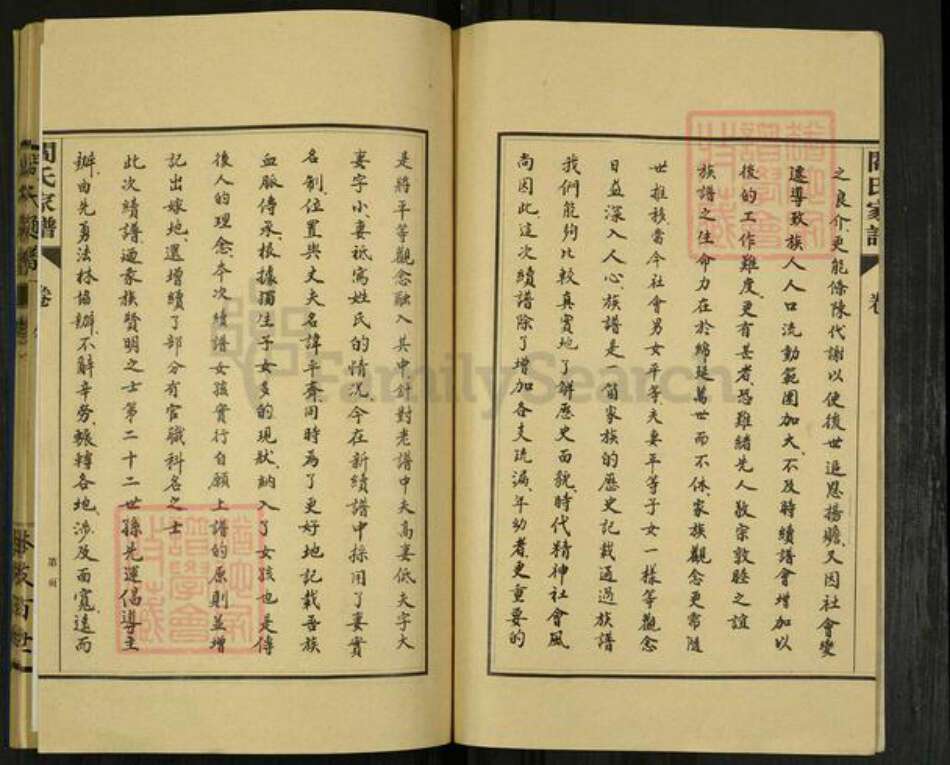 之良介更能條陳代謝以使後世追思揚瞻、又因社會變
遷導致族人人口流動範圍加大、不及時續譜會增加以
後的工作難度、更有甚者、恐難緒先人敦宗敦睦之誼
族譜之生命力在於綿延萬世而不休、家族觀念更需隨
世推移、當今社會男女平等、夫妻平等、子女一樣等觀念
日益深入人心、族譜是一個家族的歷史記載、通過族譜
我們能夠比較真實地了解歷史面貌、時代精神、社會風
尚、因此、這次續譜除了增加各支疏漏、年幼者、更重要的
是將平等觀念融入其中、針對老譜中夫高妻低、夫字大
妻字小、妻祗寫姓氏的情況、今在新續譜中採用了妻實
名制、位置與丈夫名諱平齊、同時為了更好地記載吾族
血脈傳承、根據獨生子女多的現狀、納入了女孩也是傳
後人的理念、本次續譜女孩實行自願上譜的原則並增
記出嫁地、還增續了部分有官職科名之士
此次續譜、適家族賢明之士第二十二世孫先運倡導主
辦、由先勇法林協辦、不辭辛勞、輾轉各地、涉及面寬、遠而
閆氏家譜
卷
閆氏家譜
卷
FamilySearch